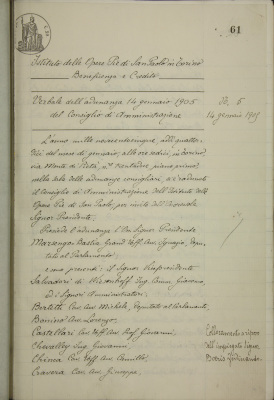 61
Istituto delle Opere Pie di San Paolo in Torino
Beneficenza e Credito
Verbale dell'adunanza 14 gennaio 1905
del Consiglio di Amministrazione
N. 5
14 gennaio 1905
L'anno mille novecentocinque, addì quattor-
dici del mese di gennaio, alle ore sedici, in Torino,
via Monte di Pietà, piano primo,
nella sala delle adunanze consigliari, si è radunato
il Consiglio di Amministrazione dell'Istituto delle
Opere Pie di San Paolo, per invito dell'
Signor Presidente.
Presiede l'adunanza il Signor Presidente
Marengo Gr. Uff. Avv. Depu-
tato al Parlamento
e sono presenti: il Signor Vicepresidente
Salvadori di Wiesenhoff Ing. Giacomo,
ed i Signori Amministratori
Bertetti Cav. Avv. Michele, Deputato al Parlamento
Bonino Avv. Lorenzo,
Castellari Cav. Uff. Avv. Prof. Giovanni,
Chevalley Ing. Giovanni,
Chinea Cav. Uff. Avv. Camillo,
Cravera Cav. Avv. Giuseppe,
a riposo
dell'impiegato Signor
Ferdinando.